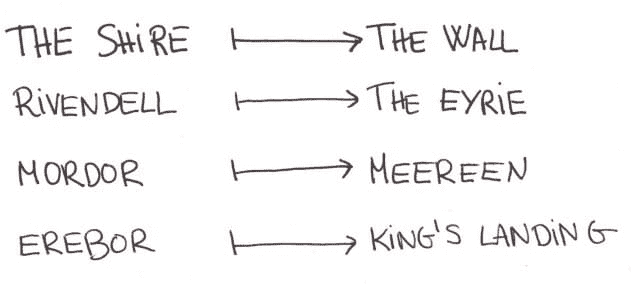 THE SHIRE ↦ THE WALL
RIVENDELL ↦ THE EYRIE
MORDOR ↦ MEEREEN
EREBOR ↦ KING'S LANDING